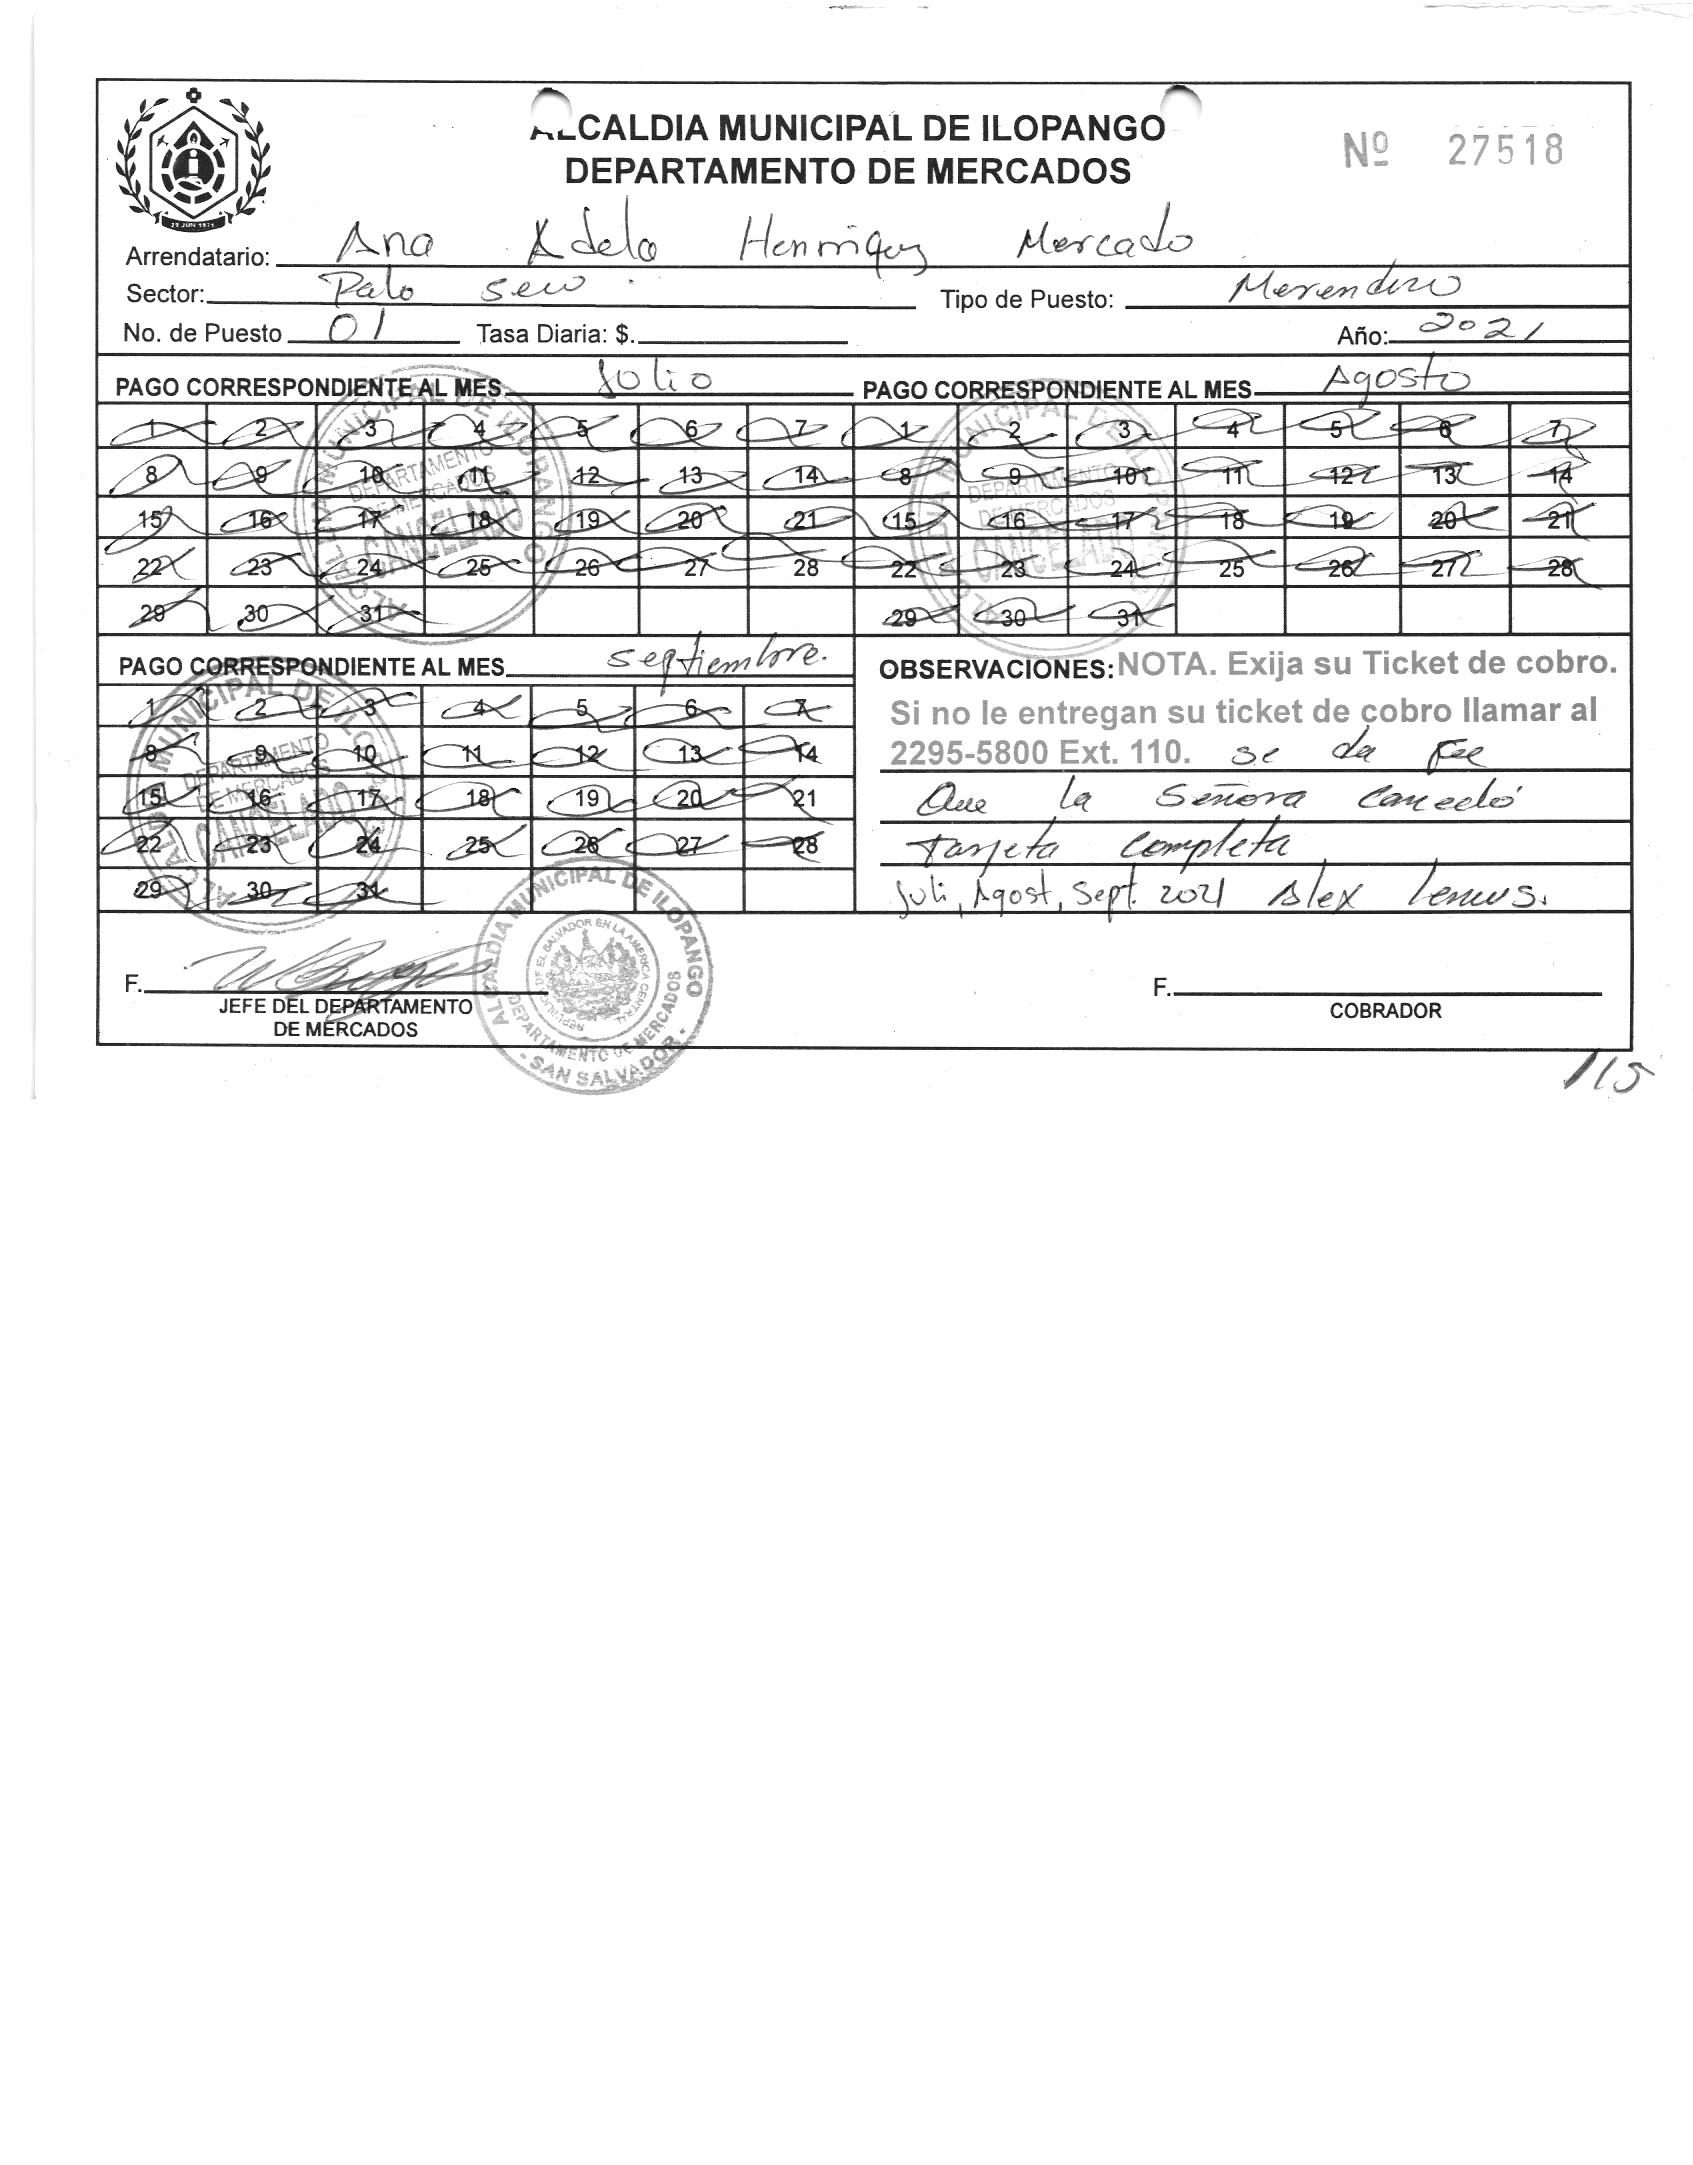 ALCALDIA MUNICIPAL DE ILOPANGO
DEPARTAMENTO DE MERCADOS
Nº 27518
29 JUN 1971
Arrendatario: Ana Adela Henriquez Mercado
Sector: Palo seco. Tipo de Puesto: Merendero
No. de Puesto 01 Tasa Diaria: $. Año: 2021
PAGO CORRESPONDIENTE AL MES Julio PAGO CORRESPONDIENTE AL MES Agosto
1 2 3 4 5 6 7 1 2 3 4 5 6 7
8 9 10 11 12 13 14 8 9 10 11 12 13 14
15 16 17 18 19 20 21 15 16 17 18 19 20 21
22 23 24 25 26 27 28 22 23 24 25 26 27 28
29 30 31 29 30 31
ALCALDIA MUNICIPAL DE ILOPANGO
DEPARTAMENTO
DE MERCADOS
CANCELADO
ALCALDIA MUNICIPAL DE ILOPANGO
DEPARTAMENTO
DE MERCADOS
CANCELADO
PAGO CORRESPONDIENTE AL MES septiembre.
1 2 3 4 5 6 7
8 9 10 11 12 13 14
15 16 17 18 19 20 21
22 23 24 25 26 27 28
29 30 31
ALCALDIA MUNICIPAL DE ILOPANGO
DEPARTAMENTO
DE MERCADOS
CANCELADO
OBSERVACIONES: NOTA. Exija su Ticket de cobro.
Si no le entregan su ticket de cobro llamar al
2295-5800 Ext. 110. se da fee
Que la Señora Canceló
tarjeta completa
Juli, Agost, Sept. 2021 Alex Lemus.
F.
JEFE DEL DEPARTAMENTO
DE MERCADOS
ALCALDIA MUNICIPAL DE ILOPANGO
REPUBLICA DE EL SALVADOR EN LA AMERICA CENTRAL
DEPARTAMENTO DE MERCADOS
- SAN SALVADOR -
F.
COBRADOR
115